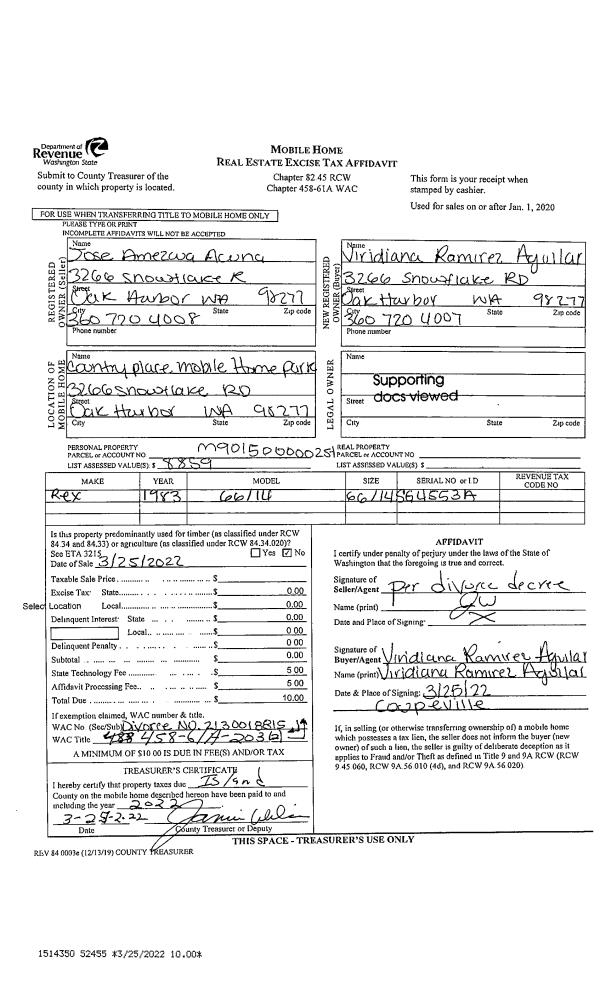 Department of
Revenue
Washington State
MOBILE HOME
REAL ESTATE EXCISE TAX AFFIDAVIT
Submit to County Treasurer of the
county in which property is located.
Chapter 82.45 RCW
Chapter 458-61A WAC
This form is your receipt when
stamped by cashier.
Used for sales on or after Jan. 1, 2020
FOR USE WHEN TRANSFERRING TITLE TO MOBILE HOME ONLY
PLEASE TYPE OR PRINT
INCOMPLETE AFFIDAVITS WILL NOT BE ACCEPTED
REGISTERED
OWNER (Seller)
Name
Jose Amezcua Acuna
3266 Snowflake R
Street
Oak Harbor WA 98277
City State Zip code
360 720 4008
Phone number
NEW REGISTERED
OWNER (Buyer)
Name
Viridiana Ramirez Aguilar
3266 Snowflake RD
Street
Oak Harbor WA 98277
City State Zip code
360 720 4007
Phone number
LOCATION OF
MOBILE HOME
Name
Country place mobile Home park
3266 Snowflake RD
Street
Oak Harbor WA 98277
City State Zip code
LEGAL OWNER
Name
Supporting
docs viewed
Street
City State Zip code
PERSONAL PROPERTY
PARCEL or ACCOUNT NO
LIST ASSESSED VALUE(S): $ 8859
REAL PROPERTY
PARCEL or ACCOUNT NO
LIST ASSESSED VALUE(S): $
MAKE YEAR MODEL SIZE SERIAL NO or I D REVENUE TAX CODE NO
Rex 1983 66/14 66/14 S64553A
Is this property predominantly used for timber (as classified under RCW
84.34 and 84.33) or agriculture (as classified under RCW 84.34.020)?
See ETA 3215 Yes No
Date of Sale 3/25/2022
Taxable Sale Price $
Excise Tax: State $ 0.00
Select Location Local $ 0.00
Delinquent Interest: State $ 0.00
Local $ 0 00
Delinquent Penalty $ 0 00
Subtotal $ 0.00
State Technology Fee $ 5 00
Affidavit Processing Fee $ 5 00
Total Due $ 10.00
If exemption claimed, WAC number & title.
WAC No (Sec/Sub) Divorce NO. 2130018815
WAC Title 458-61A-203(2)
A MINIMUM OF $10 00 IS DUE IN FEE(S) AND/OR TAX
TREASURER'S CERTIFICATE
I hereby certify that property taxes due Island
County on the mobile home described hereon have been paid to and
including the year 2022
Date County Treasurer or Deputy
AFFIDAVIT
I certify under penalty of perjury under the laws of the State of
Washington that the foregoing is true and correct.
Signature of
Seller/Agent per divorce decree
Name (print)
Date and Place of Signing:
Signature of
Buyer/Agent Viridiana Ramirez Aguilar
Name (print) Viridiana Ramirez Aguilar
Date & Place of Signing: 3/25/22
Coupeville
If, in selling (or otherwise transferring ownership of) a mobile home
which possesses a tax lien, the seller does not inform the buyer (new
owner) of such a lien, the seller is guilty of deliberate deception as it
applies to Fraud and/or Theft as defined in Title 9 and 9A RCW (RCW
9 45 060, RCW 9A.56 010 (4d), and RCW 9A.56 020)
THIS SPACE - TREASURER'S USE ONLY
REV 84 0003e (12/13/19) COUNTY TREASURER
1514350 52455 *3/25/2022 10.00*